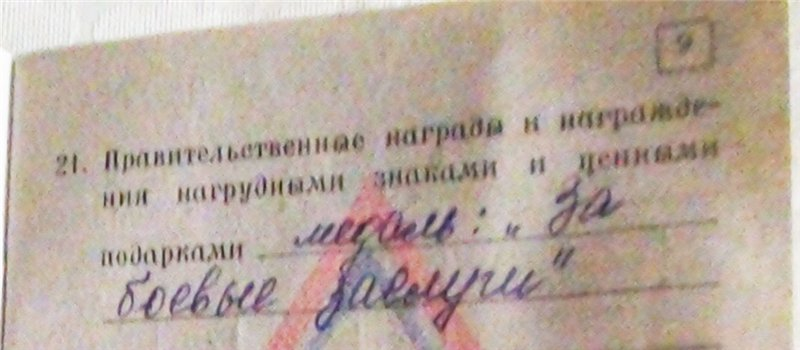 9
21. Правительственные награды и награжде-
ния нагрудными знаками и ценными
подарками медаль: „За
боевые заслуги"